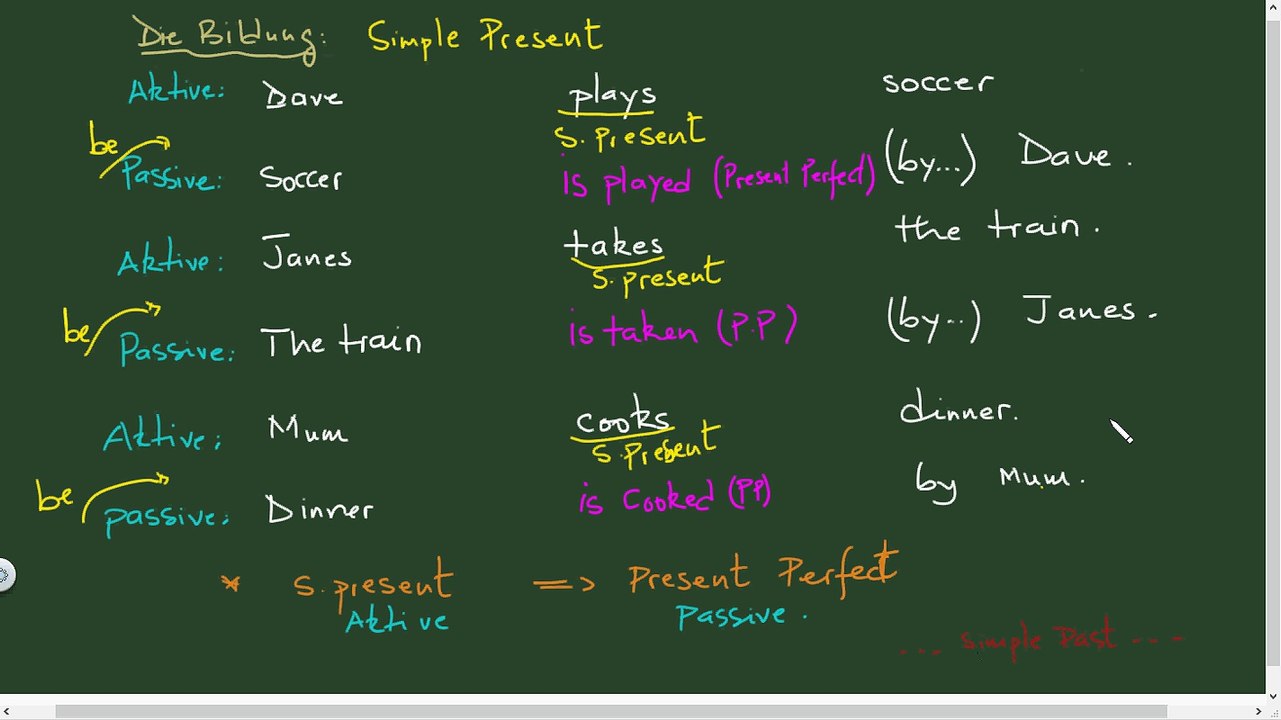 Die Bildung: Simple Present
Aktive: Dave plays soccer
s. present
be
Passive: Soccer is played (Present Perfect) (by...) Dave.
Aktive: Janes takes the train.
s. present
be
Passive: The train is taken (P.P) (by..) Janes.
Aktive: Mum cooks dinner.
s. present
be
passive: Dinner is Cooked (PP) by Mum.
* s. present => Present Perfect
Aktive Passive.
... Simple Past ---